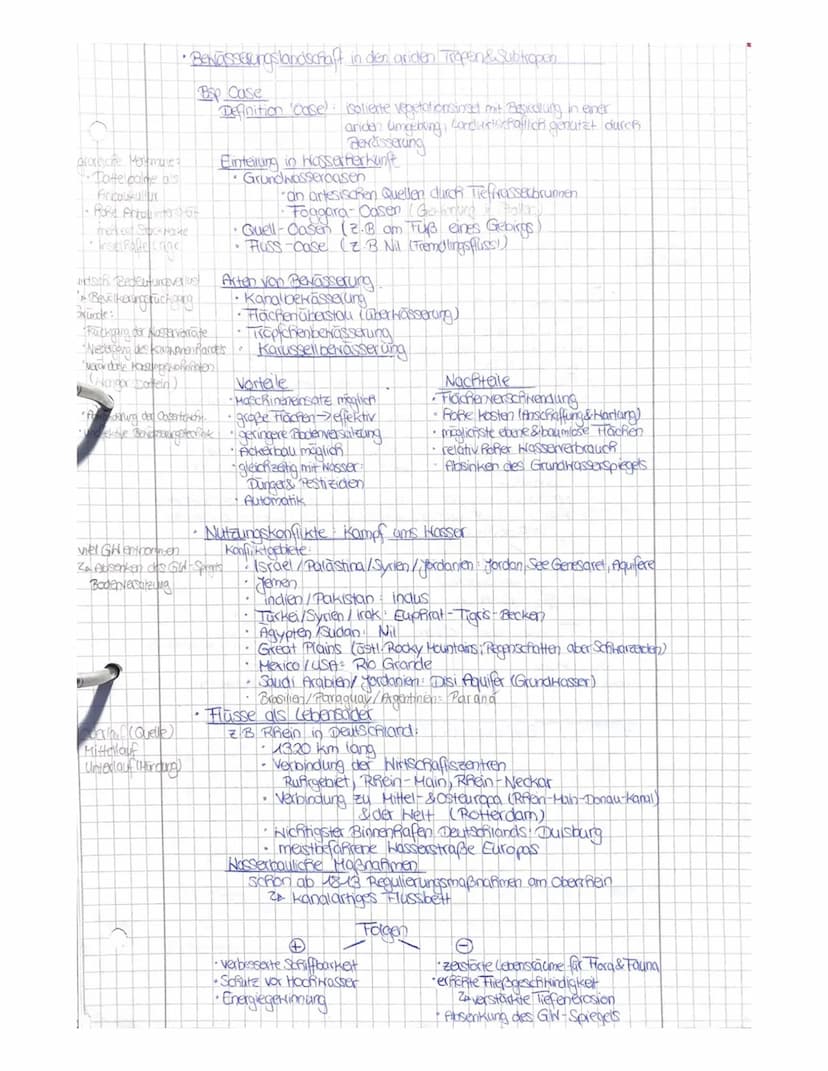 • Bewässerungslandschaft in den ariden Tropen & Subtropen
Bsp Oase
Definition 'Oase': isolierte Vegetationsinsel mit Besiedlung in einer
ariden Umgebung, landwirtschaftlich genutzt durch
Bewässerung
Einteilung in Wasserherkunft
• Grundwasseroasen
• an artesischen Quellen durch Tiefwasserbrunnen
• Foggara-Oasen
• Quell-Oasen (z.B am Fuß eines Gebirgs)
• Fluss-Oase (z.B Nil (Fremdlingsfluss!)
Merkmale:
• Dattelpalme als
• Inselhafte Lage
Arten von Bewässerung
• Kanalbewässerung
• Flächenüberstau (Überwässerung)
• Tröpfchenbewässerung
• Karussellbewässerung
Bedeutungsverlust
↳ Bevölkerungsrückgang
Gründe:
• Rückgang der Wasservorräte
• Niedergang des Karawanenhandels
Vorteile
• Maschineneinsatz möglich
• große Flächen → effektiv
• geringere Bodenversalzung
• Ackerbau möglich
• gleichzeitig mit Wasser:
Dünger & Pestiziden
• Automatik
Nachteile
• Flächenverschwendung
• hohe Kosten (Anschaffung & Wartung)
• möglichste ebene & baumlose Flächen
• relativ hoher Wasserverbrauch
• Absinken des Grundwasserspiegels
• Nutzungskonflikte: Kampf ums Wasser
viel GW entnommen
↳ Absenken des GW-Spiegels
Bodenversalzung
Konfliktgebiete:
• Israel / Palästina / Syrien / Jordanien: Jordan, See Genezaret, Aquifere
• Jemen
• Indien / Pakistan: Indus
• Türkei / Syrien / Irak: Euphrat-Tigris-Becken
• Ägypten / Sudan: Nil
• Great Plains (östl. Rocky Mountains; Regenschatten aber Schwarzerden)
• Mexico / USA: Rio Grande
• Saudi Arabien / Jordanien: Disi Aquifer (Grundwasser)
• Brasilien / Paraguay / Argentinien: Paraná
• Flüsse als Lebensader
Oberlauf (Quelle)
Mittellauf
Unterlauf (Mündung)
z.B Rhein in Deutschland:
• 1320 km lang
• Verbindung der Wirtschaftszentren
Ruhrgebiet, Rhein-Main, Rhein-Neckar
• Verbindung zu Mittel- & Osteuropa (Rhein-Main-Donau-Kanal)
& der Welt (Rotterdam)
• wichtigster Binnenhafen Deutschlands: Duisburg
• meistbefahrene Wasserstraße Europas
Wasserbauliche Maßnahmen
schon ab 1813 Regulierungsmaßnahmen am Oberrhein
↳ kanalartiges Flussbett
Folgen
+
• verbesserte Schiffbarkeit
• Schutz vor Hochwasser
• Energiegewinnung
−
• zerstörte Lebensräume für Flora & Fauna
• erhöhte Fließgeschwindigkeit
↳ verstärkte Tiefenerosion
• Absenkung des GW-Spiegels